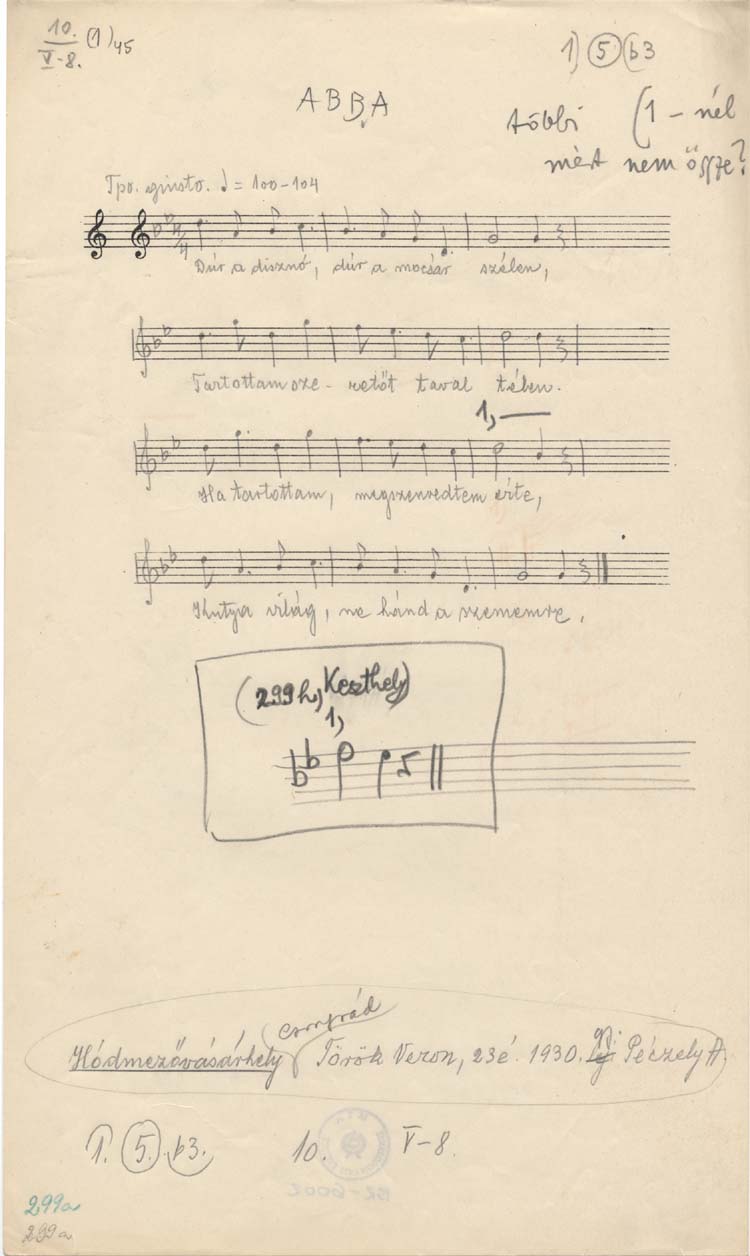 10. (1) 45
V-8.
1) 5 b3
ABBA
többi (1 - nél
mért nem össze?
Tpo. giusto. ♩ = 100-104
4/4
Dúr a disznó, dúr a mocsár szélen,
Tartottam sze - retőt taval tében.
1, —
Ha tartottam, megszenvedtem érte,
Kutya világ, ne hánd a szememre,
(299h, Keszthely)
1,
Csongrád
Hódmezővásárhely Török Veron, 23é. 1930. gy: Péczely A.
1. 5. b3. 10. V-8.
299a
299a